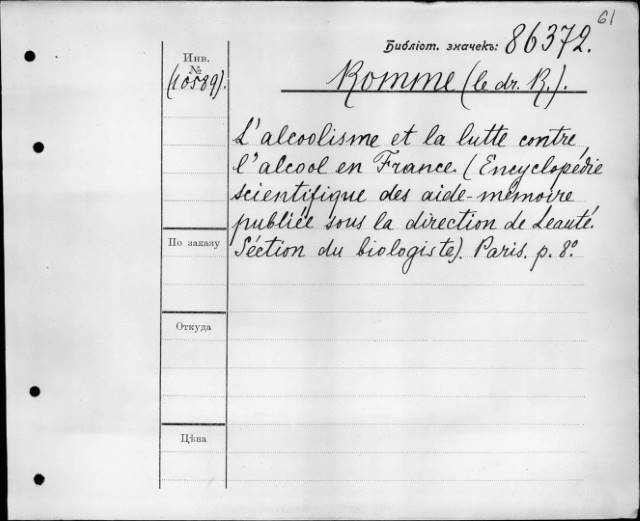 61
Библіот. значекъ: 86372.
Инв.
№
(10589).
Romme (le dr. R.).
L'alcoolisme et la lutte contre
l'alcool en France. (Encyclopédie
scientifique des aide-mémoire
publiée sous la direction de Léauté.
Séction du biologiste). Paris. p. 8º.
По заказу
Откуда
Цѣна